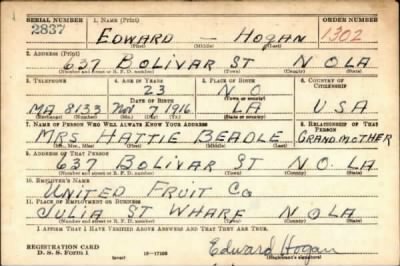 SERIAL NUMBER 1. NAME (Print) ORDER NUMBER
2837 EDWARD — HOGAN 1302
(First) (Middle) (Last)
2. ADDRESS (Print)
637 BOLIVAR ST N O LA
(Number and street or R. F. D. number) (Town) (County) (State)
3. TELEPHONE 4. AGE IN YEARS 5. PLACE OF BIRTH 6. COUNTRY OF CITIZENSHIP
23 N O
DATE OF BIRTH (Town or county)
MA 8133 Nov 7 1916 LA U S A
(Exchange) (Number) (Mo.) (Day) (Yr.) (State or country)
7. NAME OF PERSON WHO WILL ALWAYS KNOW YOUR ADDRESS 8. RELATIONSHIP OF THAT PERSON
MRS HATTIE BEADLE GRANDMOTHER
(Mr., Mrs., Miss) (First) (Middle) (Last)
9. ADDRESS OF THAT PERSON
637 BOLIVAR ST N O. LA
(Number and street or R. F. D. number) (Town) (County) (State)
10. EMPLOYER'S NAME
UNITED FRUIT CO
11. PLACE OF EMPLOYMENT OR BUSINESS
JULIA ST WHARF N O LA
(Number and street or R. F. D. number) (Town) (County) (State)
I AFFIRM THAT I HAVE VERIFIED ABOVE ANSWERS AND THAT THEY ARE TRUE.
REGISTRATION CARD Edward Hogan
D. S. S. Form 1 (Registrant's signature)